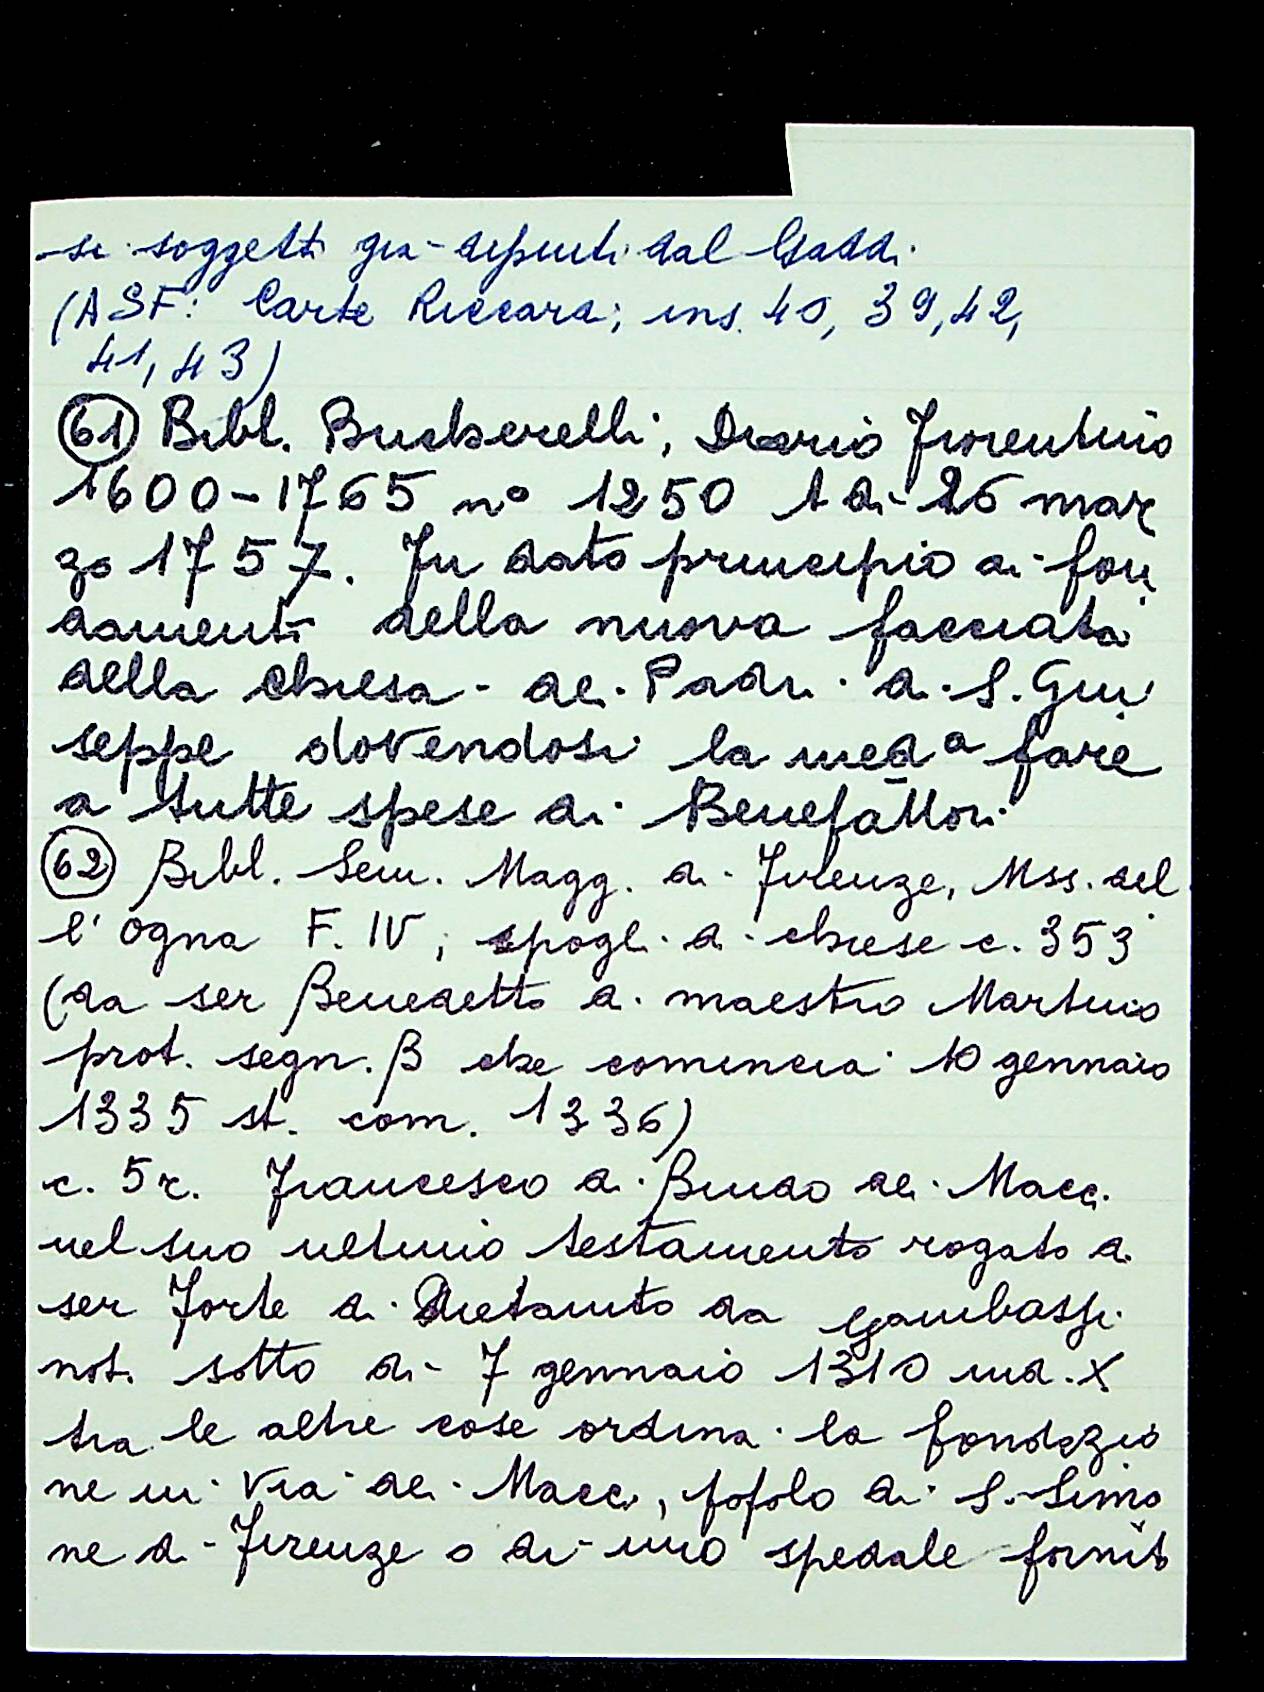 si soggetti già dipinti dal Gaddi.
(ASF: Carte Riccardi, ins. 40, 39, 42,
41, 43)
(61) Bibl. Buckerelli, Diario fiorentino
1600-1765 n° 1250 A dì 26 mar
zo 1757. Fu dato principio ai fon
damenti della nuova facciata
della chiesa dei Padri di S. Giu
seppe dovendosi la med.ª fare
a tutte spese di Benefattori
(62) Bibl. Sem. Magg. di Firenze, Mss. del
l'Ogna F. IV, spogli di chiese c. 353
(da ser Benedetto di maestro Martino
prot. segn. B che comincia 10 gennaio
1335 st. com. 1336)
c. 5r. Francesco di Bindo dei Macci
nel suo ultimo testamento rogato da
ser Forte di Dietaiuto da Gambassi
not. sotto dì 7 gennaio 1310 ind. X
tra le altre cose ordina la fondazio
ne in Via dei Macci, popolo di S. Simo
ne di Firenze o di uno spedale fornito